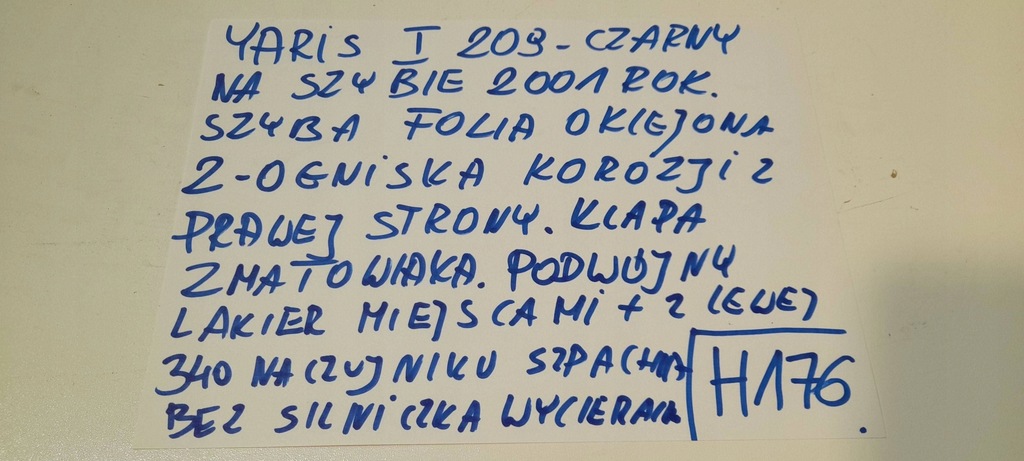 YARIS I 209-CZARNY
NA SZYBIE 2001 ROK.
SZYBA FOLIA OKLEJONA
2-OGNISKA KOROZJI Z
PRAWEJ STRONY. KLAPA
ZMATOWIAKA. PODWÓJNY
LAKIER MIEJSCAMI + Z LEWEJ
340 NA CZUJNIKU SZPACHLA
BEZ SILNICZKA WYCIERAKA
H176.